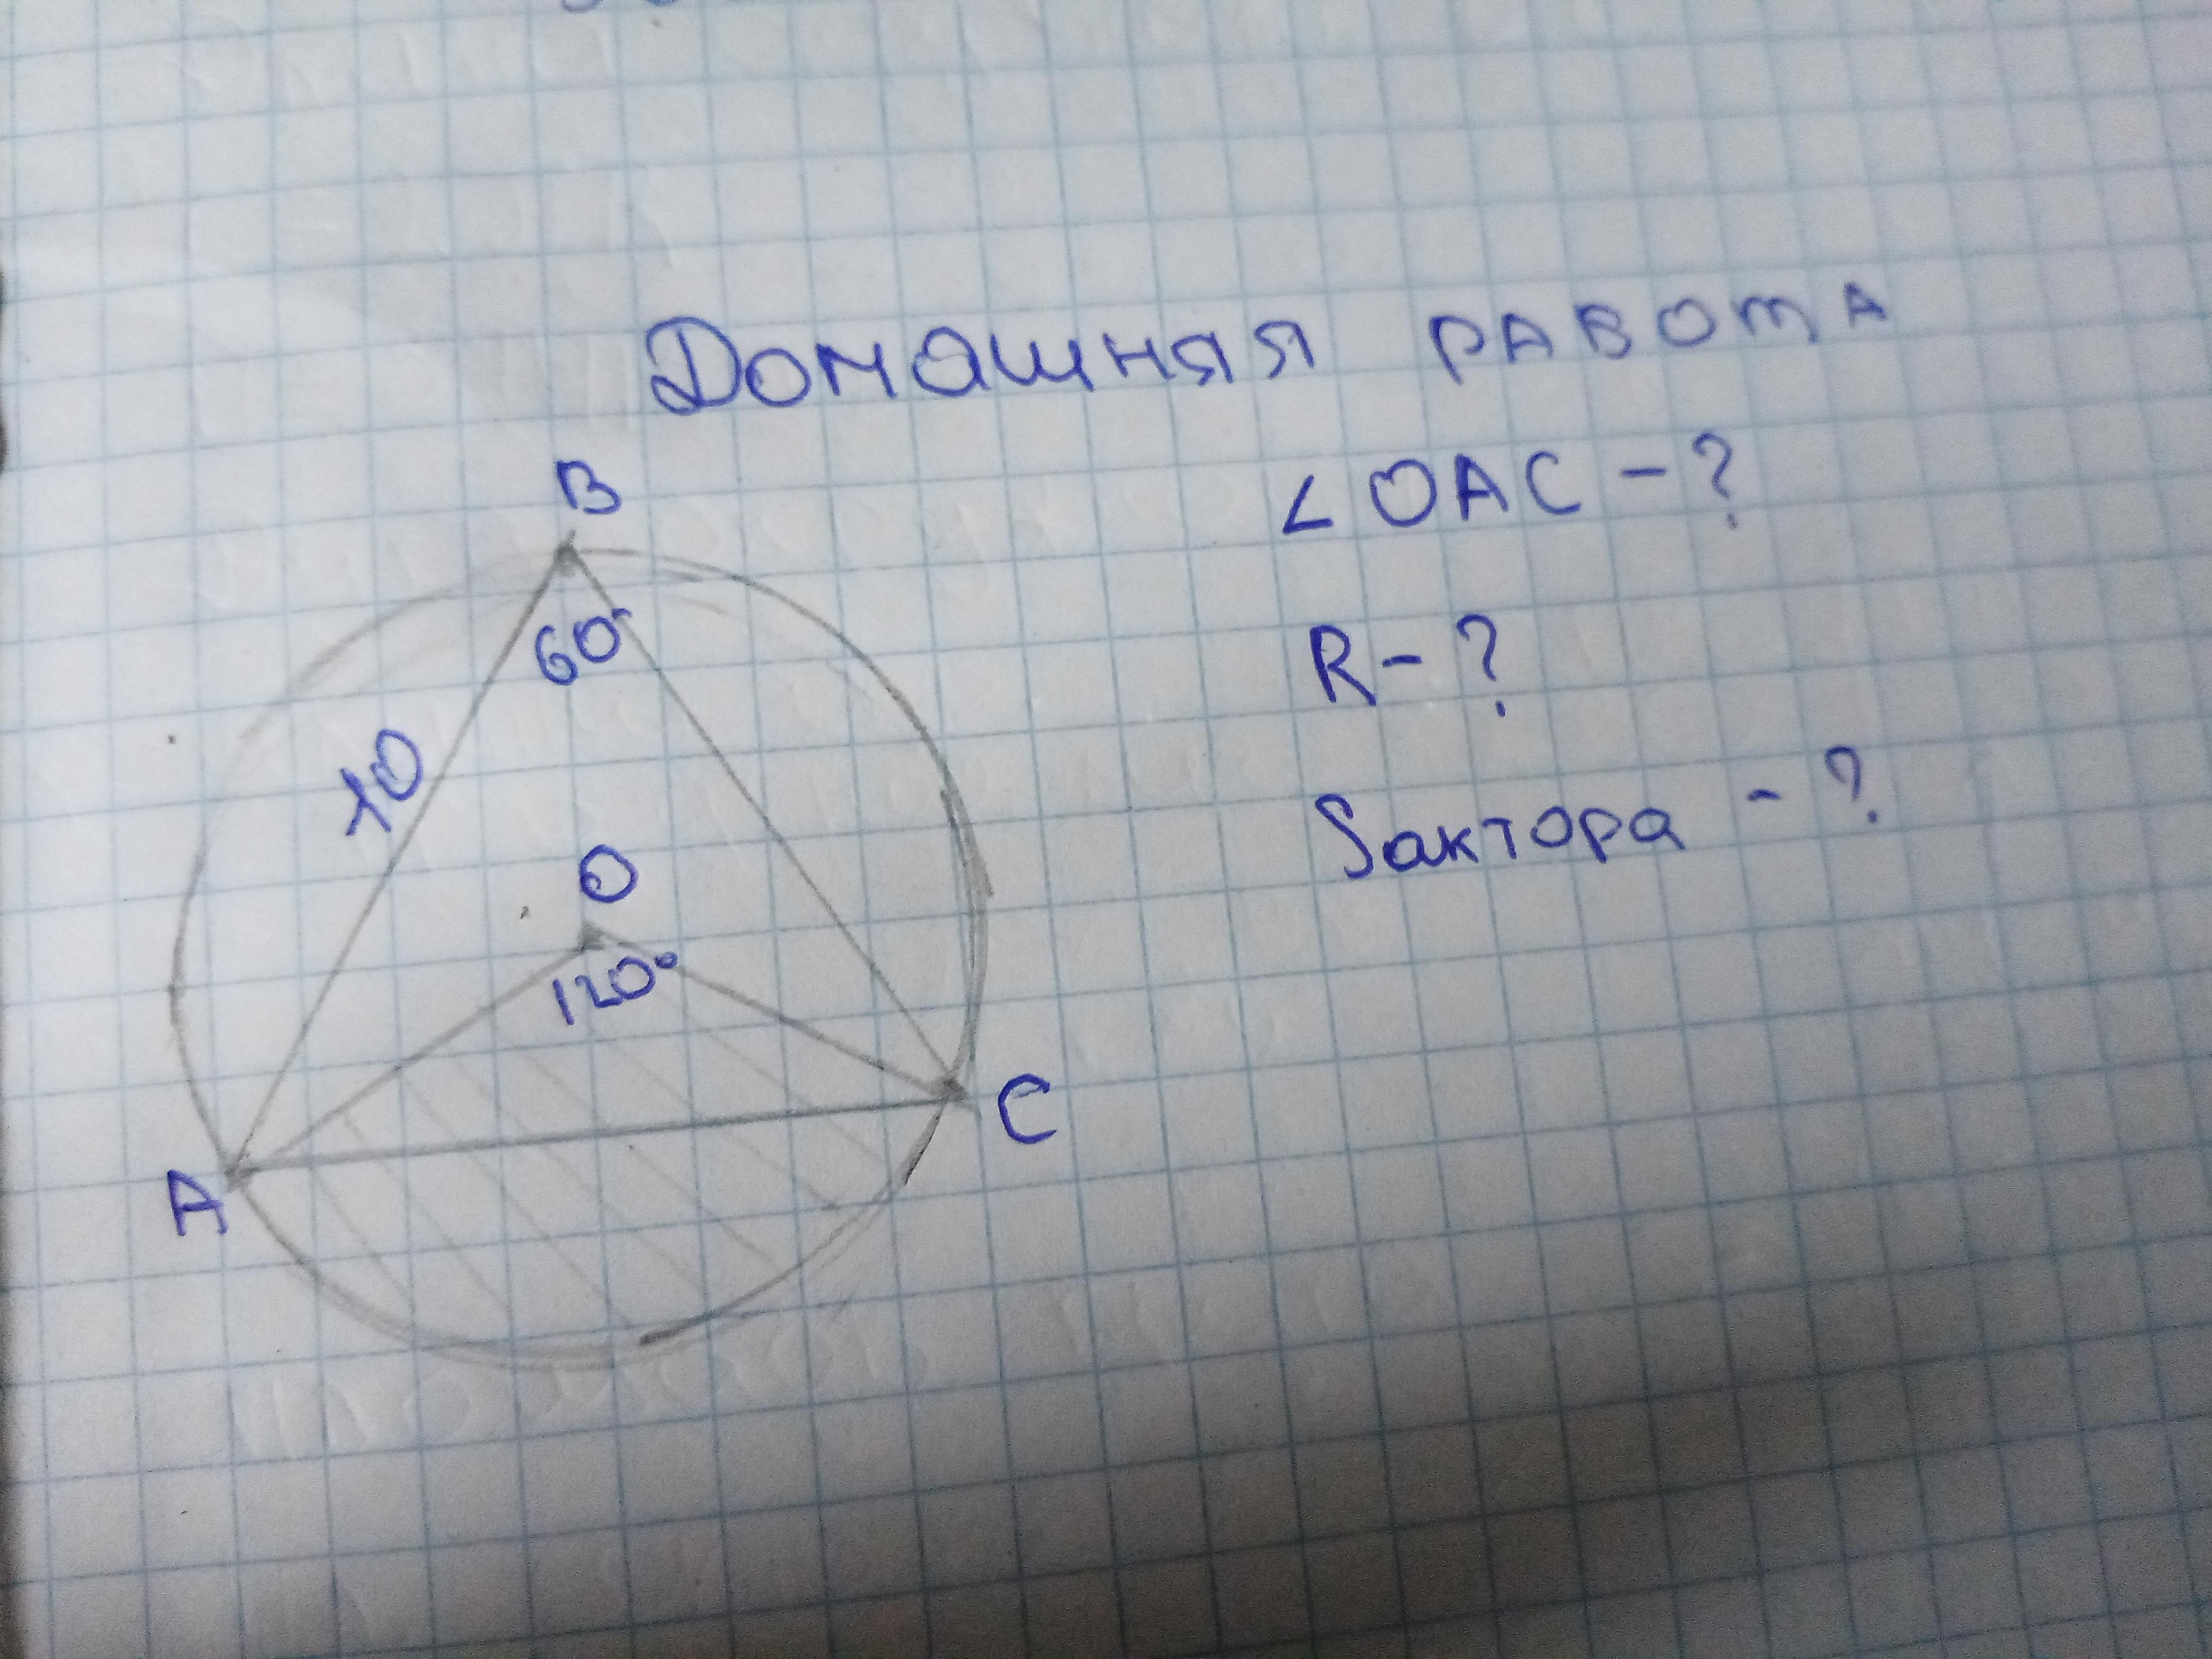 Домашняя работа
∠ OAC - ?
R - ?
Sактора - ?
B
60°
10
O
120°
C
A